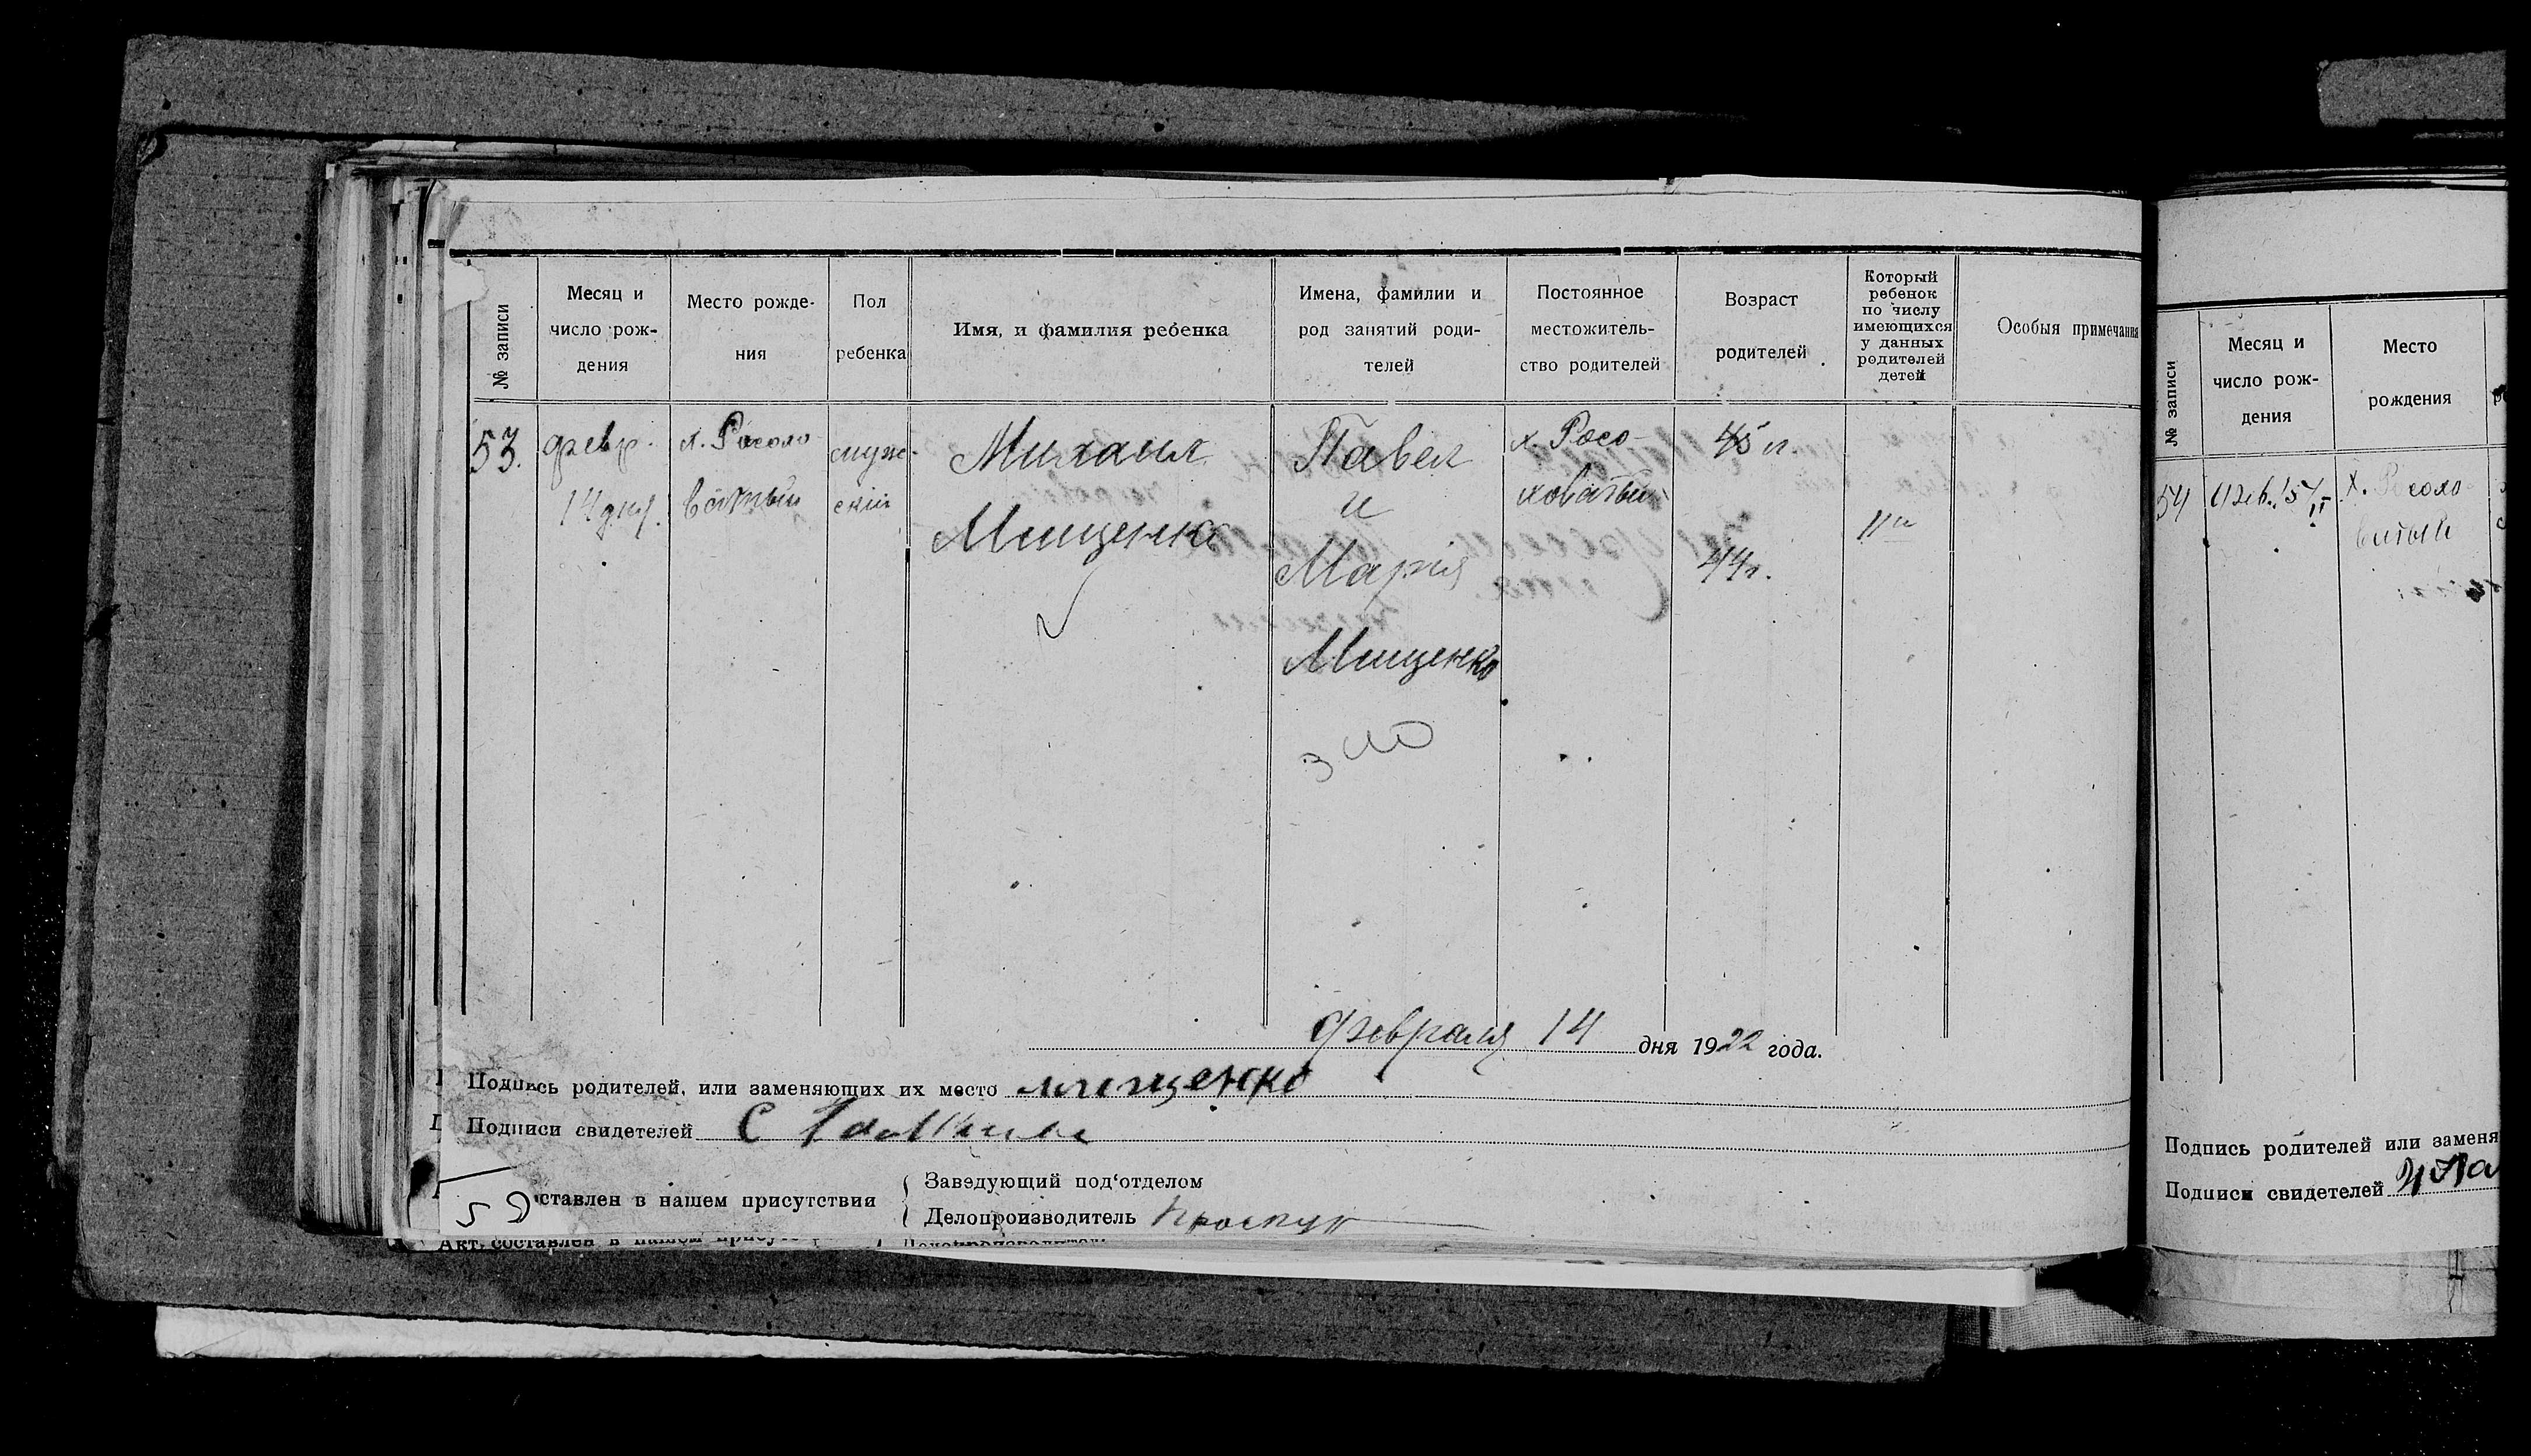 № записи
Месяц и
число рож-
дения
Место рожде-
ния
Пол
ребенка
Имя, и фамилия ребенка
Имена, фамилии и
род занятий роди-
телей
Постоянное
местожитель-
ство родителей
Возраст
родителей
Который
ребенок
по числу
имеющихся
у данных
родителей
детей
Особыя примечания
53.
февр.
14 дня.
х. Росохо-
ватый
муж-
ский
Михаил
Мищенко
Павел
и
Мария
Мищенко
х. Росо-
ховатый
45 л.
44 г.
11й
Февраля 14 дня 1922 года.
Подпись родителей, или заменяющих их место мищенко
Подписи свидетелей С
ставлен в нашем присутствии
Заведующий под'отделом
Делопроизводитель
55
Акт, составлен в нашем
№ записи
Месяц и
число рож-
дения
Место
рождения
54
х. Росохо-
ватый
Подпись родителей или заменя
Подписи свидетелей